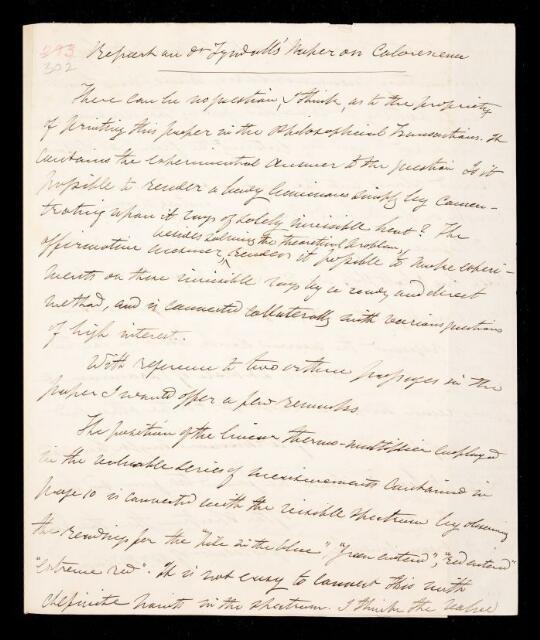 293
302
Report on Dr Tyndall's Paper on Calorescence
There can be no question, I think, as to the propriety
of printing this paper in the Philosophical Transactions. It
contains the experimental answer to the question Is it
possible to render a body luminous simply by concen-
trating upon it rays of solely invisible heat? The
besides solving the theoretical problem,
affirmative answer, renders it possible to make experi-
ments on these invisible rays by a ready and direct
method, and is connected collaterally with various questions
of high interest.
With reference to two or three passages in the
paper I would offer a few remarks.
The position of the linear thermo-multiplier employed
in the valuable series of measurements contained in
page 10 is connected with the visible spectrum by observing
the readings for the "blue", "Green entered", "Red entered"
"extreme red". It is not easy to connect this with
definite points in the spectrum. I think the value